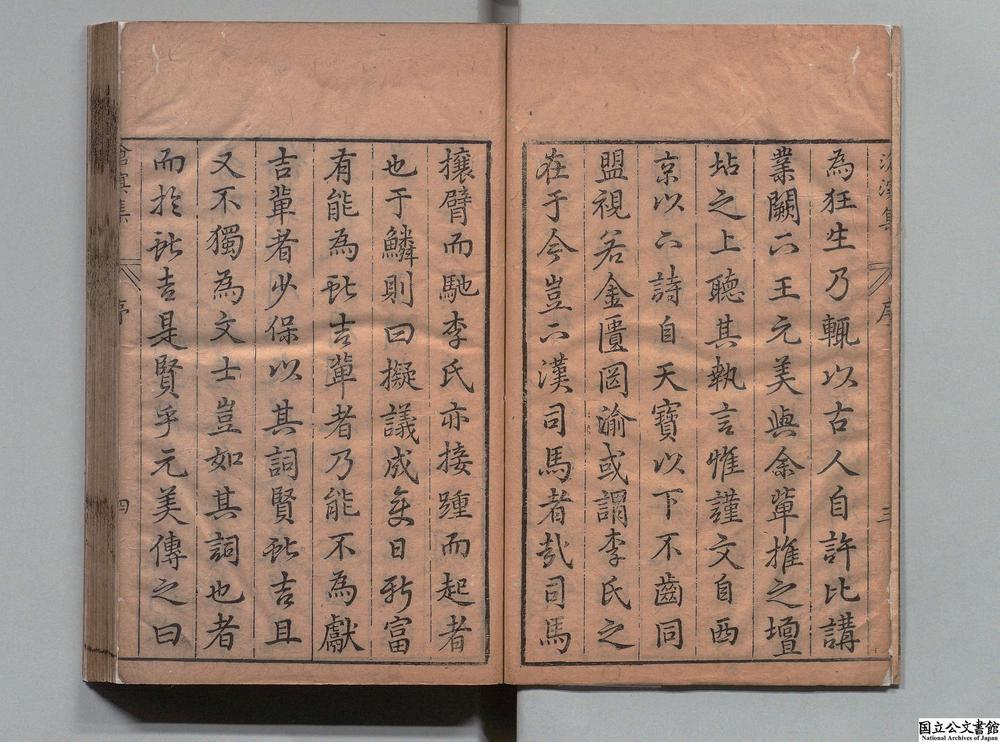 為狂生乃輒以古人自許比講
業闕下王元美與余輩推之壇
坫之上聽其執言惟謹文自西
京以下詩自天寶以下不齒同
盟視若金匱罔渝或謂李氏之
在于今豈下漢司馬者哉司馬
序
三
攘臂而馳李氏亦接踵而起者
也于鱗則曰擬議成变日新富
有能為獻吉輩者乃能不為獻
吉輩者少保以其詞賢獻吉且
又不獨為文士豈如其詞也者
而於獻吉是賢乎元美傳之曰
滄溟集
序
四
国立公文書館
National Archives of Japan